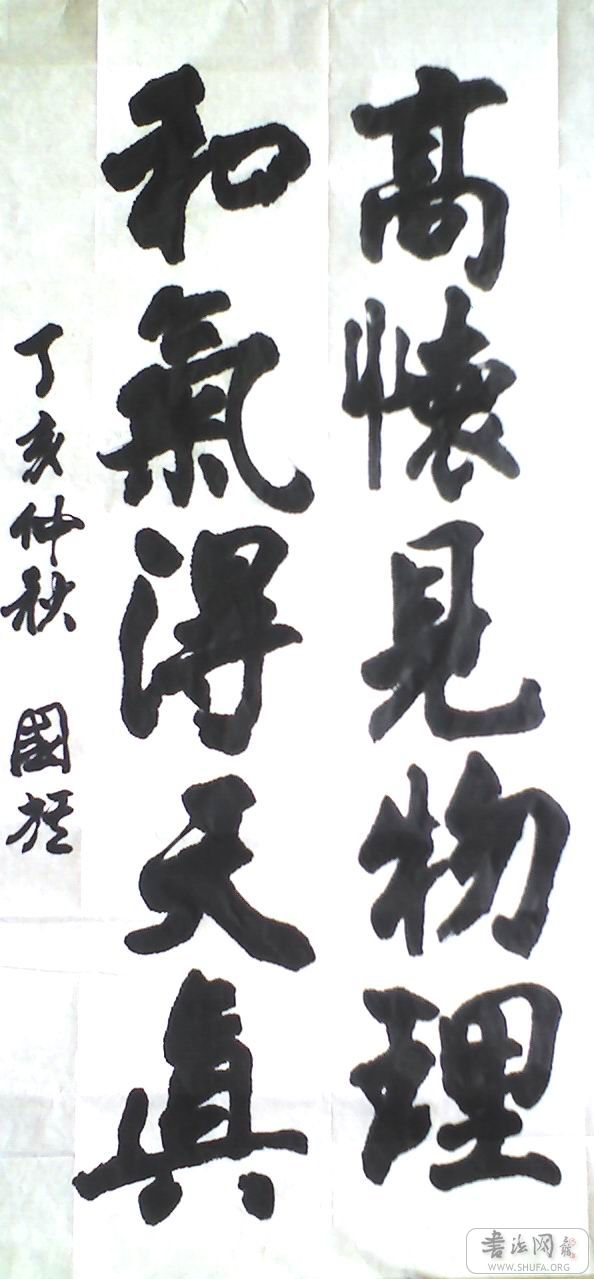 高懷見物理
和氣得天真
丁亥仲秋 國
書法网
WWW.SHUFA.ORG